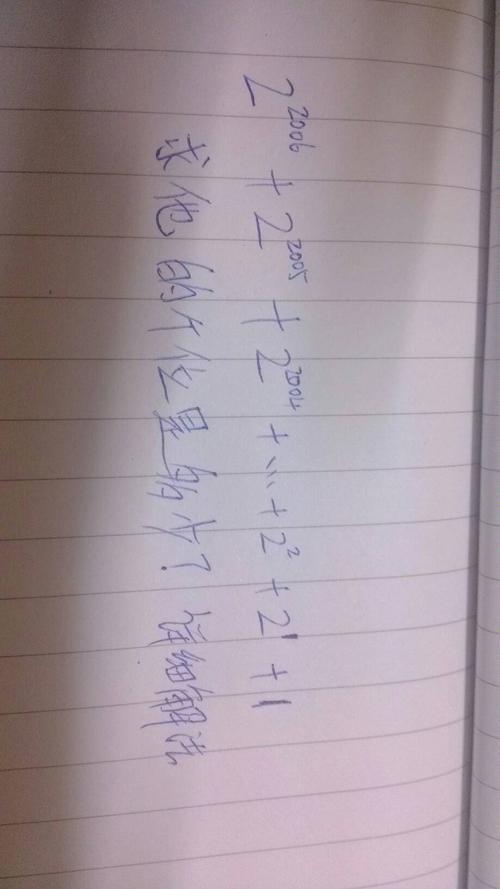 2²⁰⁰⁶ + 2²⁰⁰⁵ + 2²⁰⁰⁴ + ... + 2² + 2¹ + 1
求他的个位是多少? 详细解法